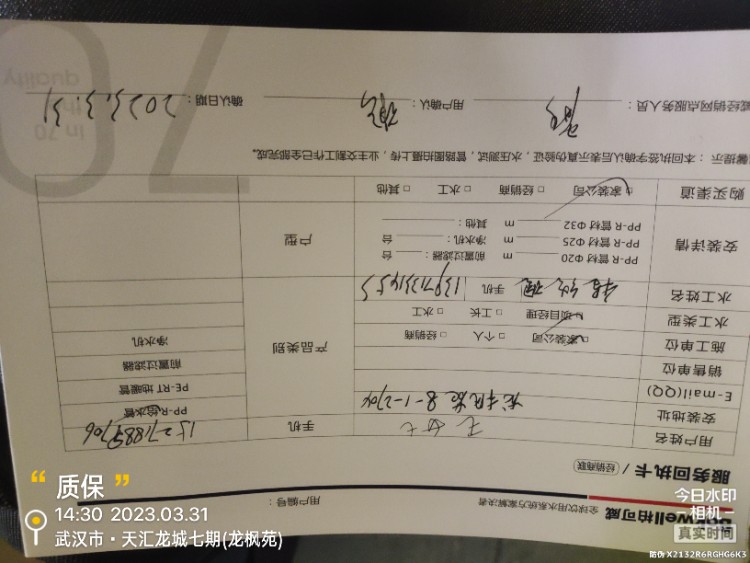 well柏可威
全球饮用水系统方案解决者
用户编号：
服务回执卡／经销商联
用户姓名
手机
安装地址 8-1-2704
PP-R给水管
E-mail(QQ)
PE-RT 地暖管
销售单位
产品类别
前置过滤器
施工单位 □家装公司 □个人 □经销商
净水机
水工类型 □项目经理 □工长 □水工
水工姓名
手机
安装详情
PP-R 管材 Φ20 m 前置过滤器： 台
PP-R 管材 Φ25 m 净水机： 台
PP-R 管材 Φ32 m 其他：
户型
购买渠道 □家装公司 □经销商 □水工 □其他
馨提示：本回执签字确认后表示真伪验证，水压测试，管路图拍摄上传，业主交割工作已全部完成。
威经销网点服务人员
用户确认
确认日期 2023.3.31
70
In 70
quality
“ 质保 ”
14:30 2023.03.31
武汉市·天汇龙城七期(龙枫苑)
今日水印
相机
真实时间
防伪 X2132R6RGHG6K3